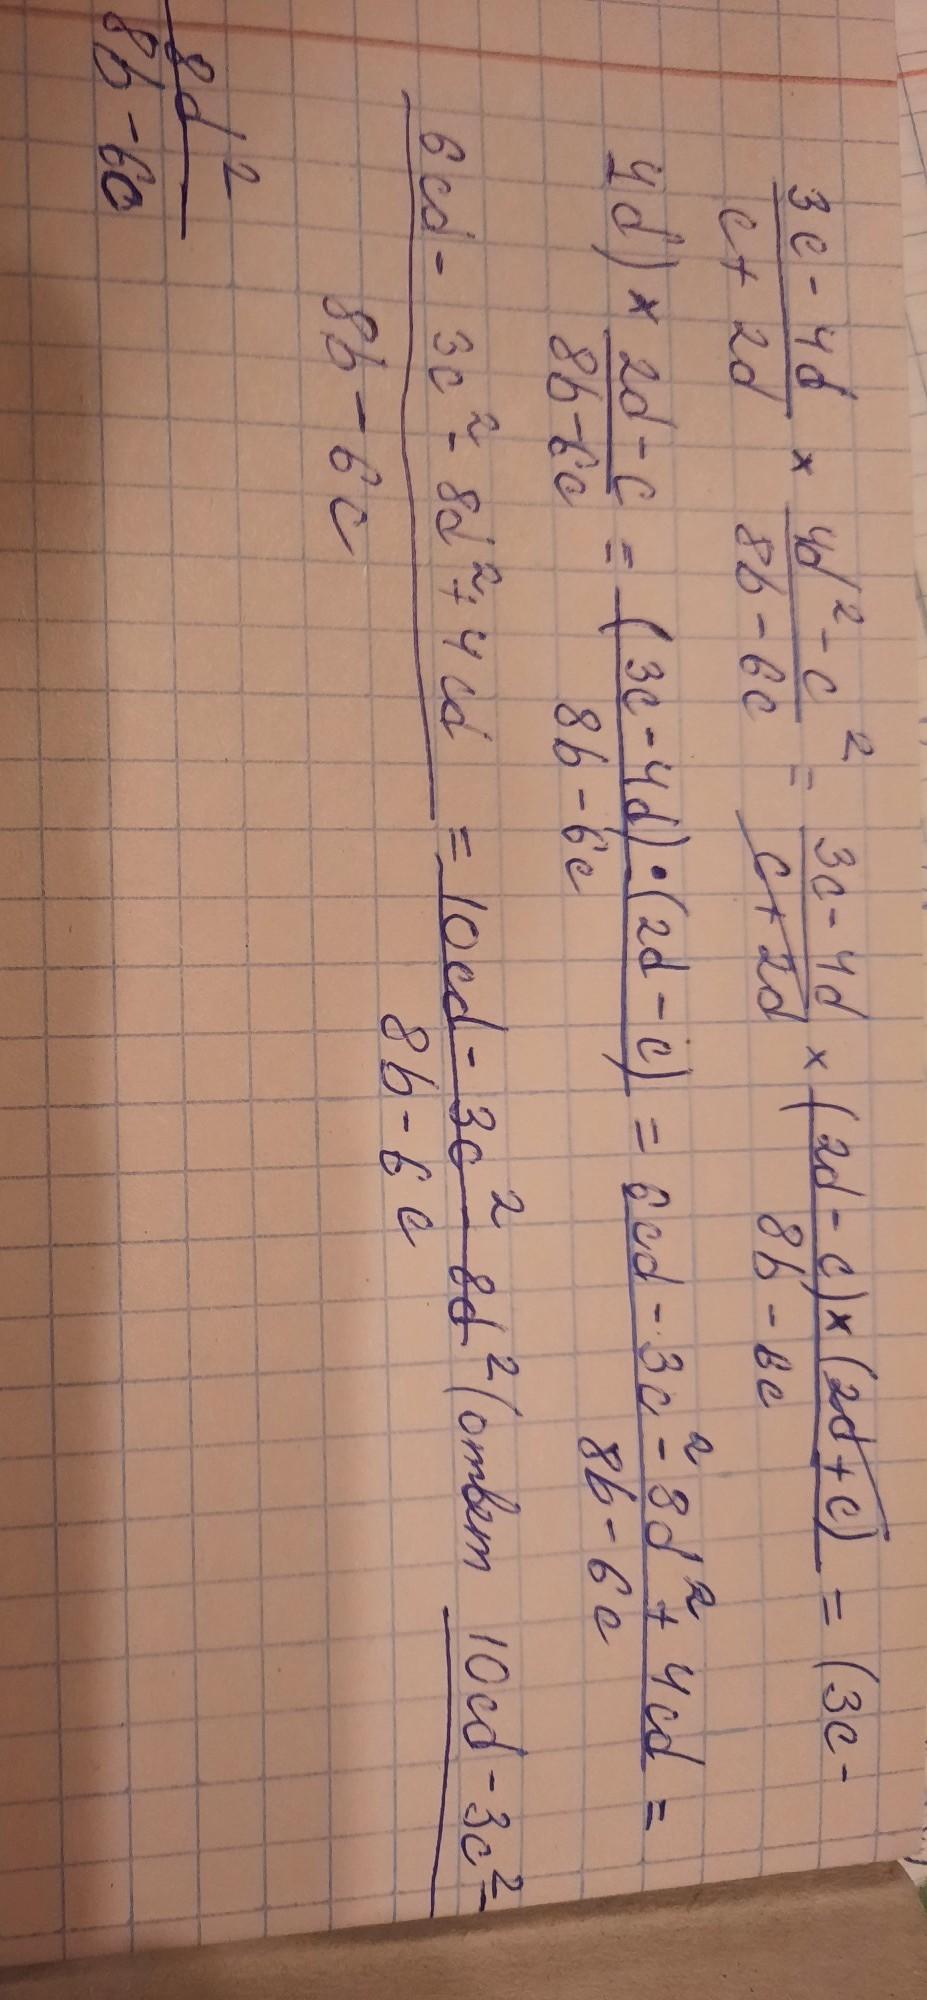 3c - 4d / c + 2d × 4d² - c² / 8b - 6c = 3c - 4d / c + 2d × (2d - c) × (2d + c) / 8b - 6c = (3c -
4d) × 2d - c / 8b - 6c = (3c - 4d) · (2d - c) / 8b - 6c = 6cd - 3c² - 8d² + 4cd / 8b - 6c =
6cd - 3c² - 8d² + 4cd / 8b - 6c = 10cd - 3c² - 8d² / 8b - 6c (ответ 10cd - 3c² -
8d² / 8b - 6c